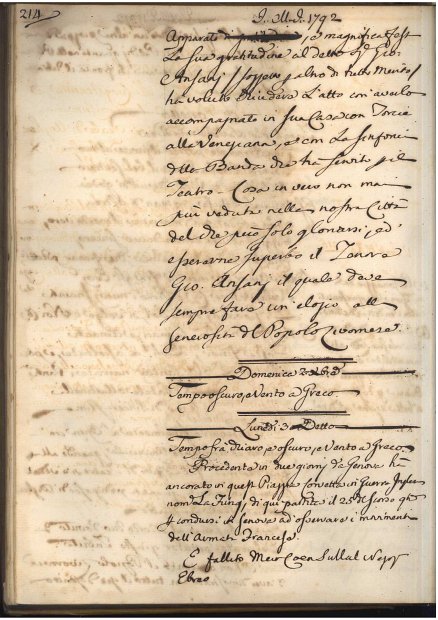 214
I. M. I. 1792
Apparato e magnifica fest
La sua gratitudine al detto Sig. Gio:
Ansanj soggetto p altro di tutto Merito
ha voluto chiudere l'atto con averlo
accompagnato in sua Casa con Torcie
alla Veneziana, e con La sinfonia
detta Banda che ha servito p il
Teatro - Cosa in vero non mai
più veduta nella nostra Città
del che può solo gloriarsi, ed
esserne superbo il Tenore
Gio. Ansanj il quale deve
sempre fare un elogio alla
generosità del Popolo Livornese.
Domenica 2 Xbre
Tempo oscuro, e Vento a Greco.
Lunedì 3 Detto
Tempo fra chiaro, e oscuro, e Vento a Greco.
Procedente in due giorni da Genova ha
ancorato in questa Piaggia la in Guerra Inglese
nom. La di qui partita il 25 scorso
condursi a Genova ad osservare i movimenti
dell'Armata Francese.
È fallito Meir Coen Sullal
Ebreo